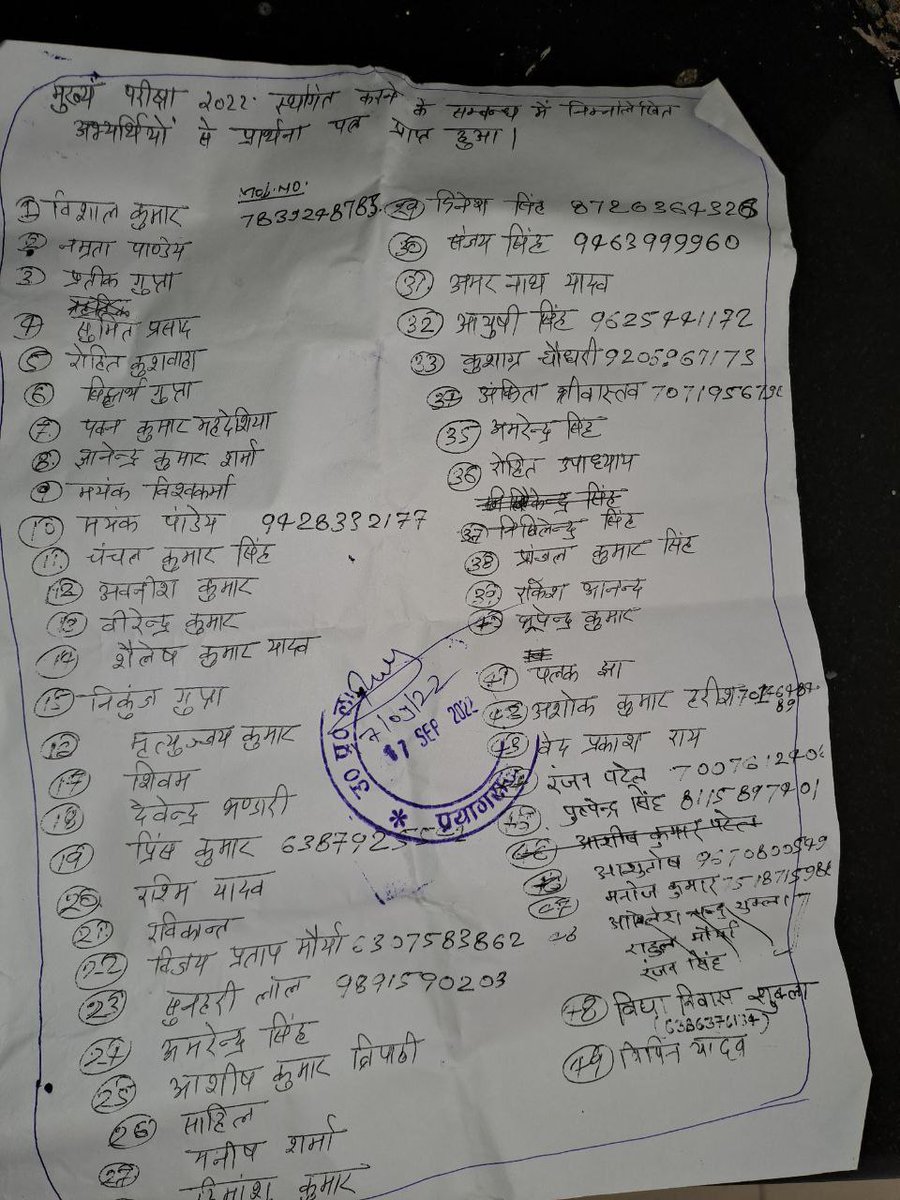 मुख्य परीक्षा 2022 स्थगित करने के सम्बन्ध में निम्नलिखित
अभ्यर्थियों से प्रार्थना पत्र प्राप्त हुआ।
Mob. NO:
① विशाल कुमार 7839248783
② नम्रता पाण्डेय
③ प्रतीक गुप्ता
④ सुमित प्रसाद
⑤ रोहित कुशवाहा
⑥ सिद्धार्थ गुप्ता
⑦ पवन कुमार मद्देशिया
⑧ ज्ञानेन्द्र कुमार शर्मा
⑨ मयंक विश्वकर्मा
⑩ मयंक पांडेय 9428332177
⑪ चंचल कुमार सिंह
⑫ अवनीश कुमार
⑬ वीरेन्द्र कुमार
⑭ शैलेष कुमार यादव
⑮ निकुंज गुप्ता
⑫ मृत्युञ्जय कुमार
⑰ शिवम
⑱ देवेन्द्र भण्डारी
⑲ प्रिंस कुमार
⑳ रश्मि यादव
㉑ रविकान्त
㉒ विजय प्रताप मौर्या 6307583862
㉓ सुनहरी लाल 9891590203
㉔ अमरेन्द्र सिंह
㉕ आशीष कुमार त्रिपाठी
㉖ साहिल
㉗ मनीष शर्मा
हिमांशु कुमार
㉙ दिनेश सिंह 8726364326
㉚ संजय सिंह 9463999960
㉛ अमर नाथ यादव
㉜ आयुषी सिंह 9625441172
㉝ कुशाग्र चौधरी 9205967173
㉞ अंकिता श्रीवास्तव
㉟ अमरेन्द्र सिंह
㊱ रोहित उपाध्याय
㊲ निखिलेन्द्र सिंह
㊳ प्रांजल कुमार सिंह
㊴ राकेश आनन्द
㊵ भूपेन्द्र कुमार
㊶ पलक झा
㊷ अशोक कुमार हरीश
㊸ वेद प्रकाश राय
रंजन पटेल
पुष्पेन्द्र सिंह 8115897401
आशीष कुमार पटेल
आशुतोष 9670800549
㊼ मनोज कुमार
अखिलेश चन्द्र शुक्ला
राहुल मौर्या
रंजन सिंह
㊽ विद्या निवास शुक्ला
(6386376134)
㊾ विपिन यादव
उ0 प्र0 लो
7/09/22
17 SEP 2022
* प्रयागराज